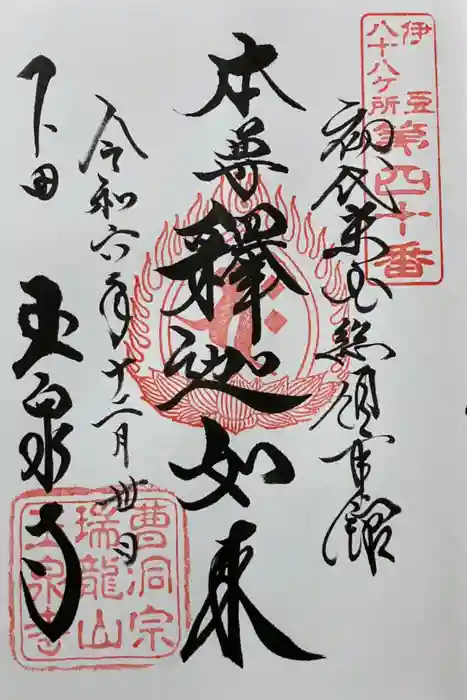 伊豆
八十八ケ所
第四十番
初代米国総領事館
本尊釋迦如来
令和六年十二月卅日
下田 玉泉寺
曹洞宗
瑞龍山
玉泉寺